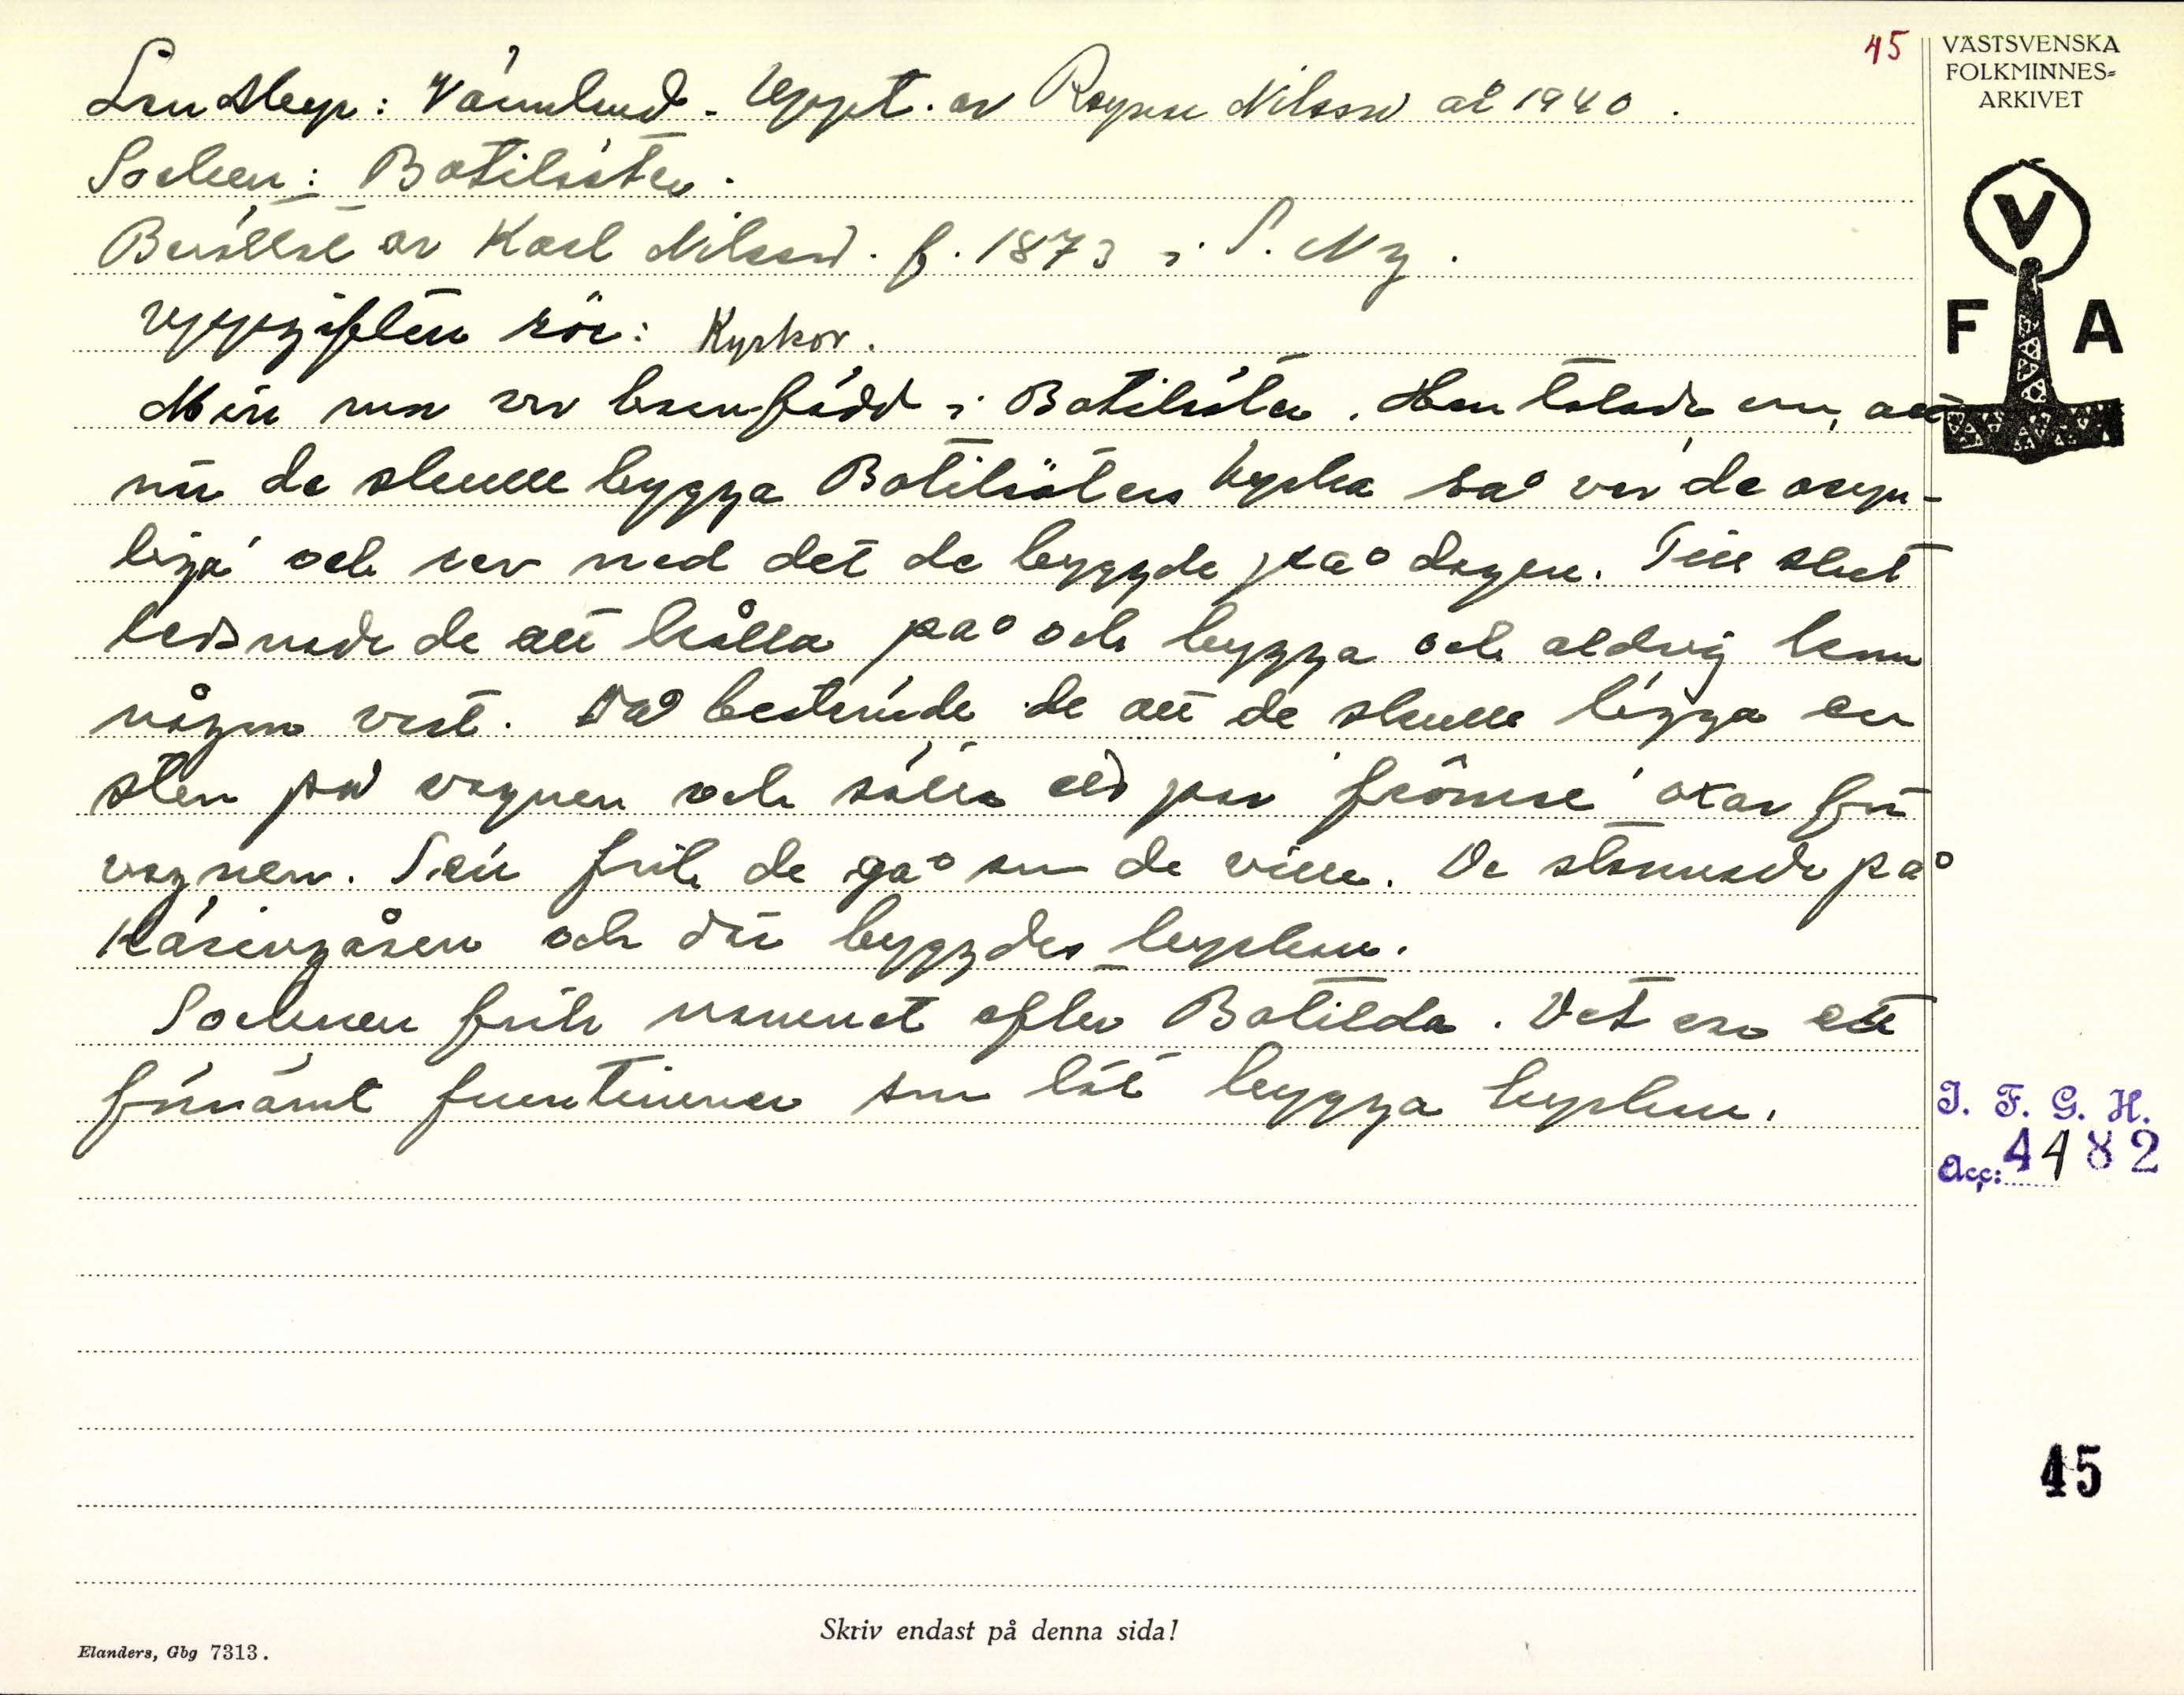 45
VÄSTSVENSKA
FOLKMINNES-
ARKIVET
Landskap: Värmland. Uppt. av Ragnar Nilsson år 1940.
Socken: Botilsäter.
Berättat av Karl Nilsson. f. 1873 i S. Ny.
Uppgiften rör: Kyrkor.
V
F A
Min mor var barnfödd i Botilsäter. Hon talade om, att
när de skulle bygga Botilsäters kyrka så var de osyn-
liga och rev ned det de byggde på dagen. Till slut
ledsnade de att hålla på och bygga och aldrig kom
någon vart. Då bestämde de att de skulle lägga en
sten på vagnen och sätta ett par främre oxar för
vagnen. Sen fick de gå som de ville. De stannade på
Kasingåsen och där byggdes kyrkan.
Socknen fick namnet efter Botilda. Det era ett
förnämt fruntimmer som lät bygga kyrkan.
I. F. G. H.
Acc: 4482
45
Skriv endast på denna sida!
Elanders, Gbg 7313.